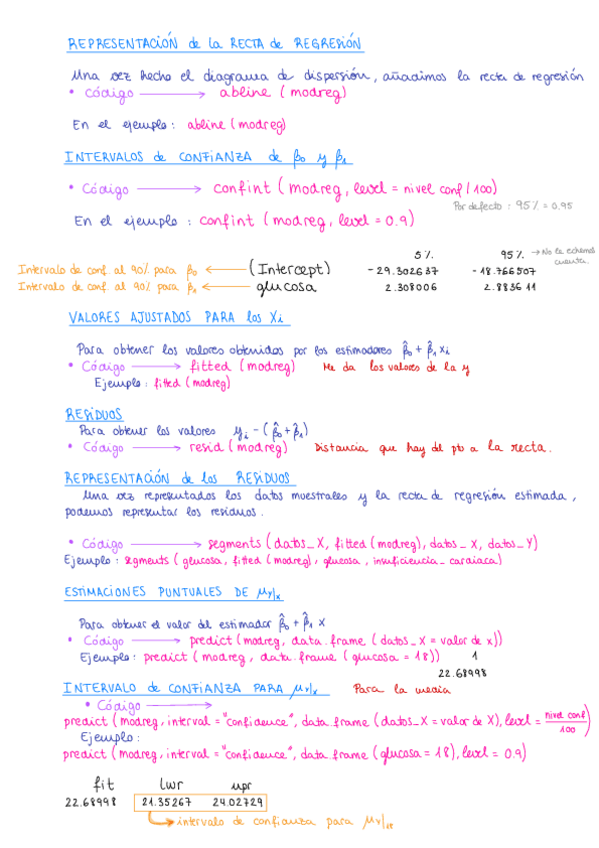 REPRESENTACIÓN de la RECTA de REGRESIÓN
Una vez hecho el diagrama de dispersión, añadimos la recta de regresión
• Código → abline (modreg)
En el ejemplo: abline (modreg)
INTERVALOS de CONFIANZA de β₀ y β₁
• Código → confint (modreg, level = nivel conf / 100)
Por defecto: 95% = 0.95
En el ejemplo: confint (modreg, level = 0.9)
5% 95% → No le echemos cuenta
Intervalo de conf. al 90% para β₀ ← (Intercept) -29.302637 -18.766507
Intervalo de conf. al 90% para β₁ ← glucosa 2.308006 2.883611
VALORES AJUSTADOS PARA los Xi
Para obtener los valores obtenidos por los estimadores β̂₀ + β̂₁ xi
• Código → fitted (modreg) Me da los valores de la y
Ejemplo: fitted (modreg)
RESIDUOS
Para obtener los valores yi - (β̂₀ + β̂₁)
• Código → resid (modreg) Distancia que hay del pto a la recta.
REPRESENTACIÓN de los RESIDUOS
Una vez representados los datos muestrales y la recta de regresión estimada,
podemos representar los residuos.
• Código → segments (datos_X, fitted (modreg), datos_X, datos_Y)
Ejemplo: segments (glucosa, fitted (modreg), glucosa, insuficiencia_cardiaca)
ESTIMACIONES PUNTUALES DE μY|x
Para obtener el valor del estimador β̂₀ + β̂₁ X
• Código → predict (modreg, data.frame (datos_X = valor de x))
Ejemplo: predict (modreg, data.frame (glucosa = 18)) 1
22.68998
INTERVALO de CONFIANZA PARA μY|x Para la media
• Código →
predict (modreg, interval = "confidence", data.frame (datos_X = valor de X), level = nivel conf / 100)
Ejemplo:
predict (modreg, interval = "confidence", data.frame (glucosa = 18), level = 0.9)
fit lwr upr
22.68998 21.35267 24.02729
→ intervalo de confianza para μY|18